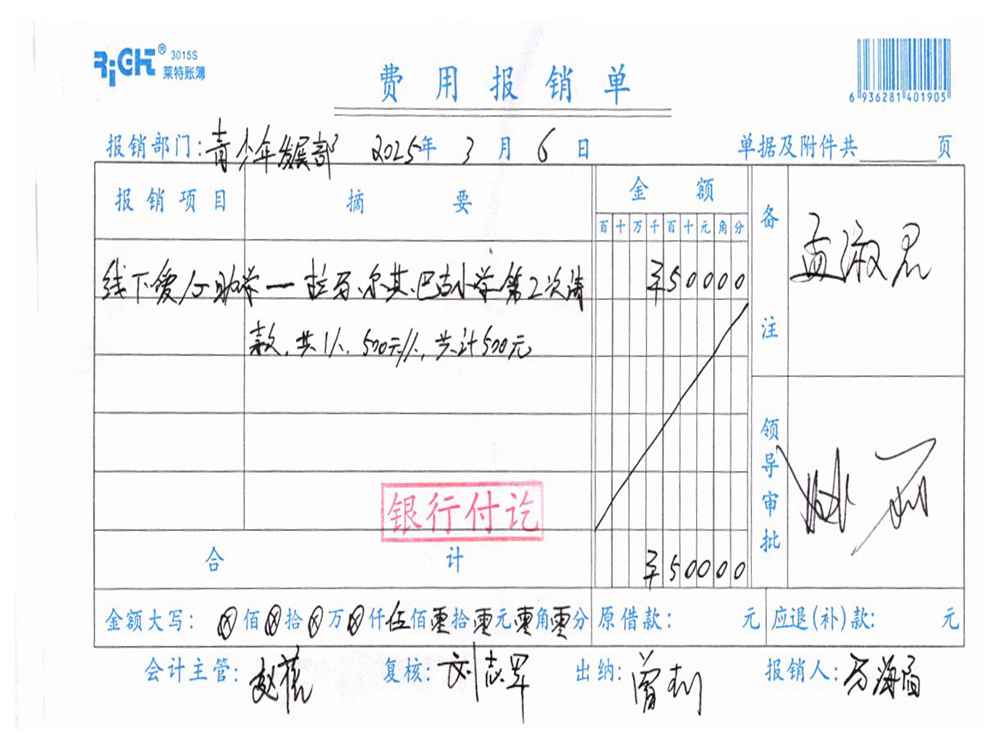 RiGHT® 3015S
莱特账簿
费用报销单
6 936281 401905
报销部门:青少年发展部 2025年3月6日 单据及附件共 页
报销项目 摘要 金额 备注
百十万千百十元角分
线下爱心助学—拉马尔其巴古小学第2次请 ¥50000
款,共1人,500元/人,共计500元
孟淑君
领导审批
银行付讫
合计 ¥50000
金额大写:ⓧ佰ⓧ拾ⓧ万ⓧ仟伍佰零拾零元零角零分 原借款: 元 应退(补)款: 元
会计主管: 赵 复核:刘志军 出纳:曾利 报销人:万海